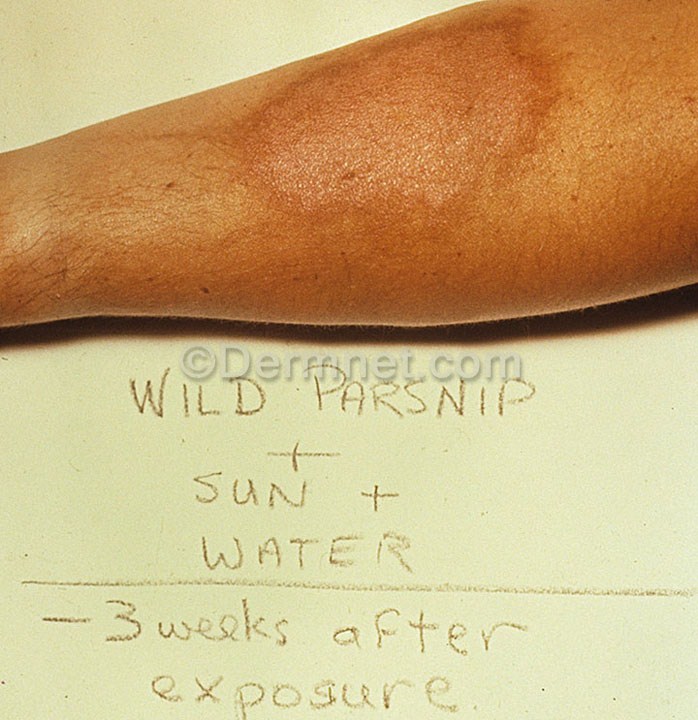 ©Dermnet.com
WILD PARSNIP
+
SUN +
WATER
- 3 weeks after
exposure.